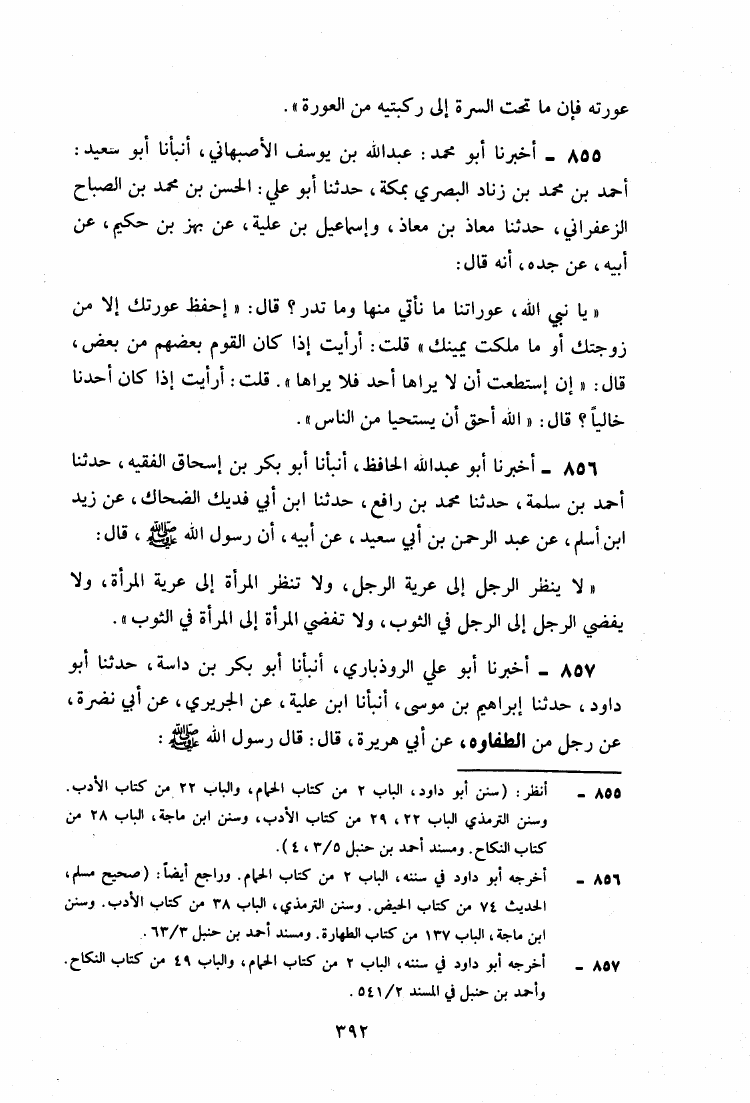 عورته فإن ما تحت السرة إلى ركبتيه من العورة ».
٨٥٥ ـ أخبرنا أبو محمد : عبدالله بن يوسف الأصبهاني، أنبأنا أبو سعيد :
أحمد بن محمد بن زناد البصري بمكة ، حدثنا أبو علي : الحسن بن محمد بن الصباح
الزعفراني ، حدثنا معاذ بن معاذ ، وإسماعيل بن علية ، عن بهز بن حكيم ، عن
أبيه ، عن جده ، أنه قال :
« يا نبي الله ، عوراتنا ما نأتي منها وما تدر ؟ قال : « إحفظ عورتك إلا من
زوجتك أو ما ملكت يمينك » قلت : أرأيت إذا كان القوم بعضهم من بعض ،
قال : « إن إستطعت أن لا يراها أحد فلا يراها » . قلت : أرأيت إذا كان أحدنا
خالياً ؟ قال : « الله أحق أن يستحيا من الناس » .
٨٥٦ ـ أخبرنا أبو عبدالله الحافظ ، أنبأنا أبو بكر بن إسحاق الفقيه ، حدثنا
أحمد بن سلمة ، حدثنا محمد بن رافع ، حدثنا ابن أبي فديك الضحاك ، عن زيد
ابن أسلم ، عن عبد الرحمن بن أبي سعيد ، عن أبيه ، أن رسول الله ﷺ ، قال :
« لا ينظر الرجل إلى عرية الرجل ، ولا تنظر المرأة إلى عرية المرأة ، ولا
يفضي الرجل إلى الرجل في الثوب ، ولا تفضي المرأة إلى المرأة في الثوب » .
٨٥٧ ـ أخبرنا أبو علي الروذباري ، أنبأنا أبو بكر بن داسة ، حدثنا أبو
داود ، حدثنا إبراهيم بن موسى ، أنبأنا ابن علية ، عن الجريري ، عن أبي نضرة ،
عن رجل من الطفاوه ، عن أبي هريرة ، قال : قال رسول الله ﷺ :
٨٥٥ ـ أنظر : (سنن أبو داود ، الباب ٢ من كتاب الحمام ، والباب ٢٢ من كتاب الأدب.
وسنن الترمذي الباب ٢٢ ، ٢٩ من كتاب الأدب ، وسنن ابن ماجة ، الباب ٢٨ من
كتاب النكاح. ومسند أحمد بن حنبل ٣/٥ ، ٤).
٨٥٦ ـ أخرجه أبو داود في سننه ، الباب ٢ من كتاب الحمام. وراجع أيضاً : (صحيح مسلم ،
الحديث ٧٤ من كتاب الحيض. وسنن الترمذي ، الباب ٣٨ من كتاب الأدب. وسنن
ابن ماجة ، الباب ١٣٧ من كتاب الطهارة. ومسند أحمد بن حنبل ٦٣/٣ .
٨٥٧ ـ أخرجه أبو داود في سننه ، الباب ٢ من كتاب الحمام ، والباب ٤٩ من كتاب النكاح.
وأحمد بن حنبل في المسند ٥٤١/٢ .
٣٩٢